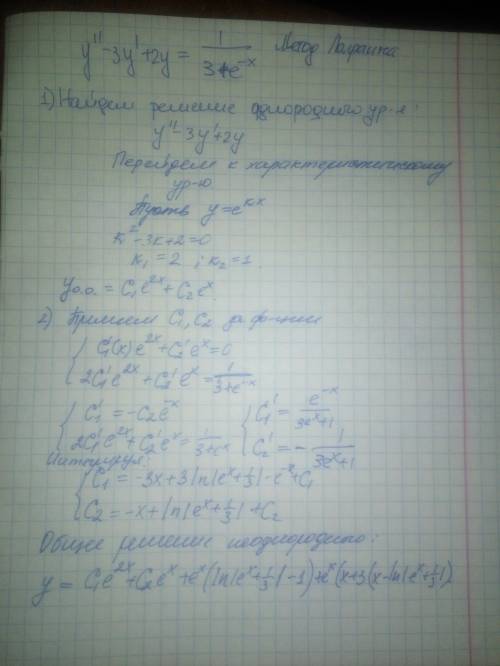 y'' - 3y' + 2y = 1/(3+e^{-x}) Метод Лагранжа
1) Найдем решение однородного ур-я:
y'' - 3y' + 2y
Перейдем к характеристическому
ур-ю.
Пусть y = e^{kx}
k^2 - 3k + 2 = 0
k_1 = 2 ; k_2 = 1
y_{o.o.} = C_1 e^{2x} + C_2 e^x
2) Примем C_1, C_2 за ф-ции
{ C_1'(x) e^{2x} + C_2' e^x = 0
2C_1' e^{2x} + C_2' e^x = 1/(3+e^{-x})
{ C_1' = -C_2 e^{-x} { C_1' = e^{-x}/(3e^x+1)
2C_1' e^{2x} + C_2' e^x = 1/(3+e^x) C_2' = - 1/(3e^x+1)
Интегрируя:
{ C_1 = -3x + 3 ln|e^x + 1/3| - e^{-x} + C_1
C_2 = -x + ln|e^x + 1/3| + C_2
Общее решение неоднородного:
y = C_1 e^{2x} + C_2 e^x + e^x (ln|e^x + 1/3| - 1) + e^x (x + 3(x - ln|e^x + 1/3|)